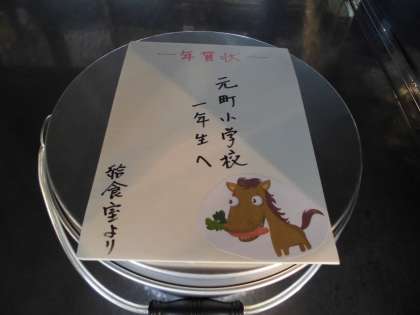 年賀状
元町小学校
一年生へ
給食室より